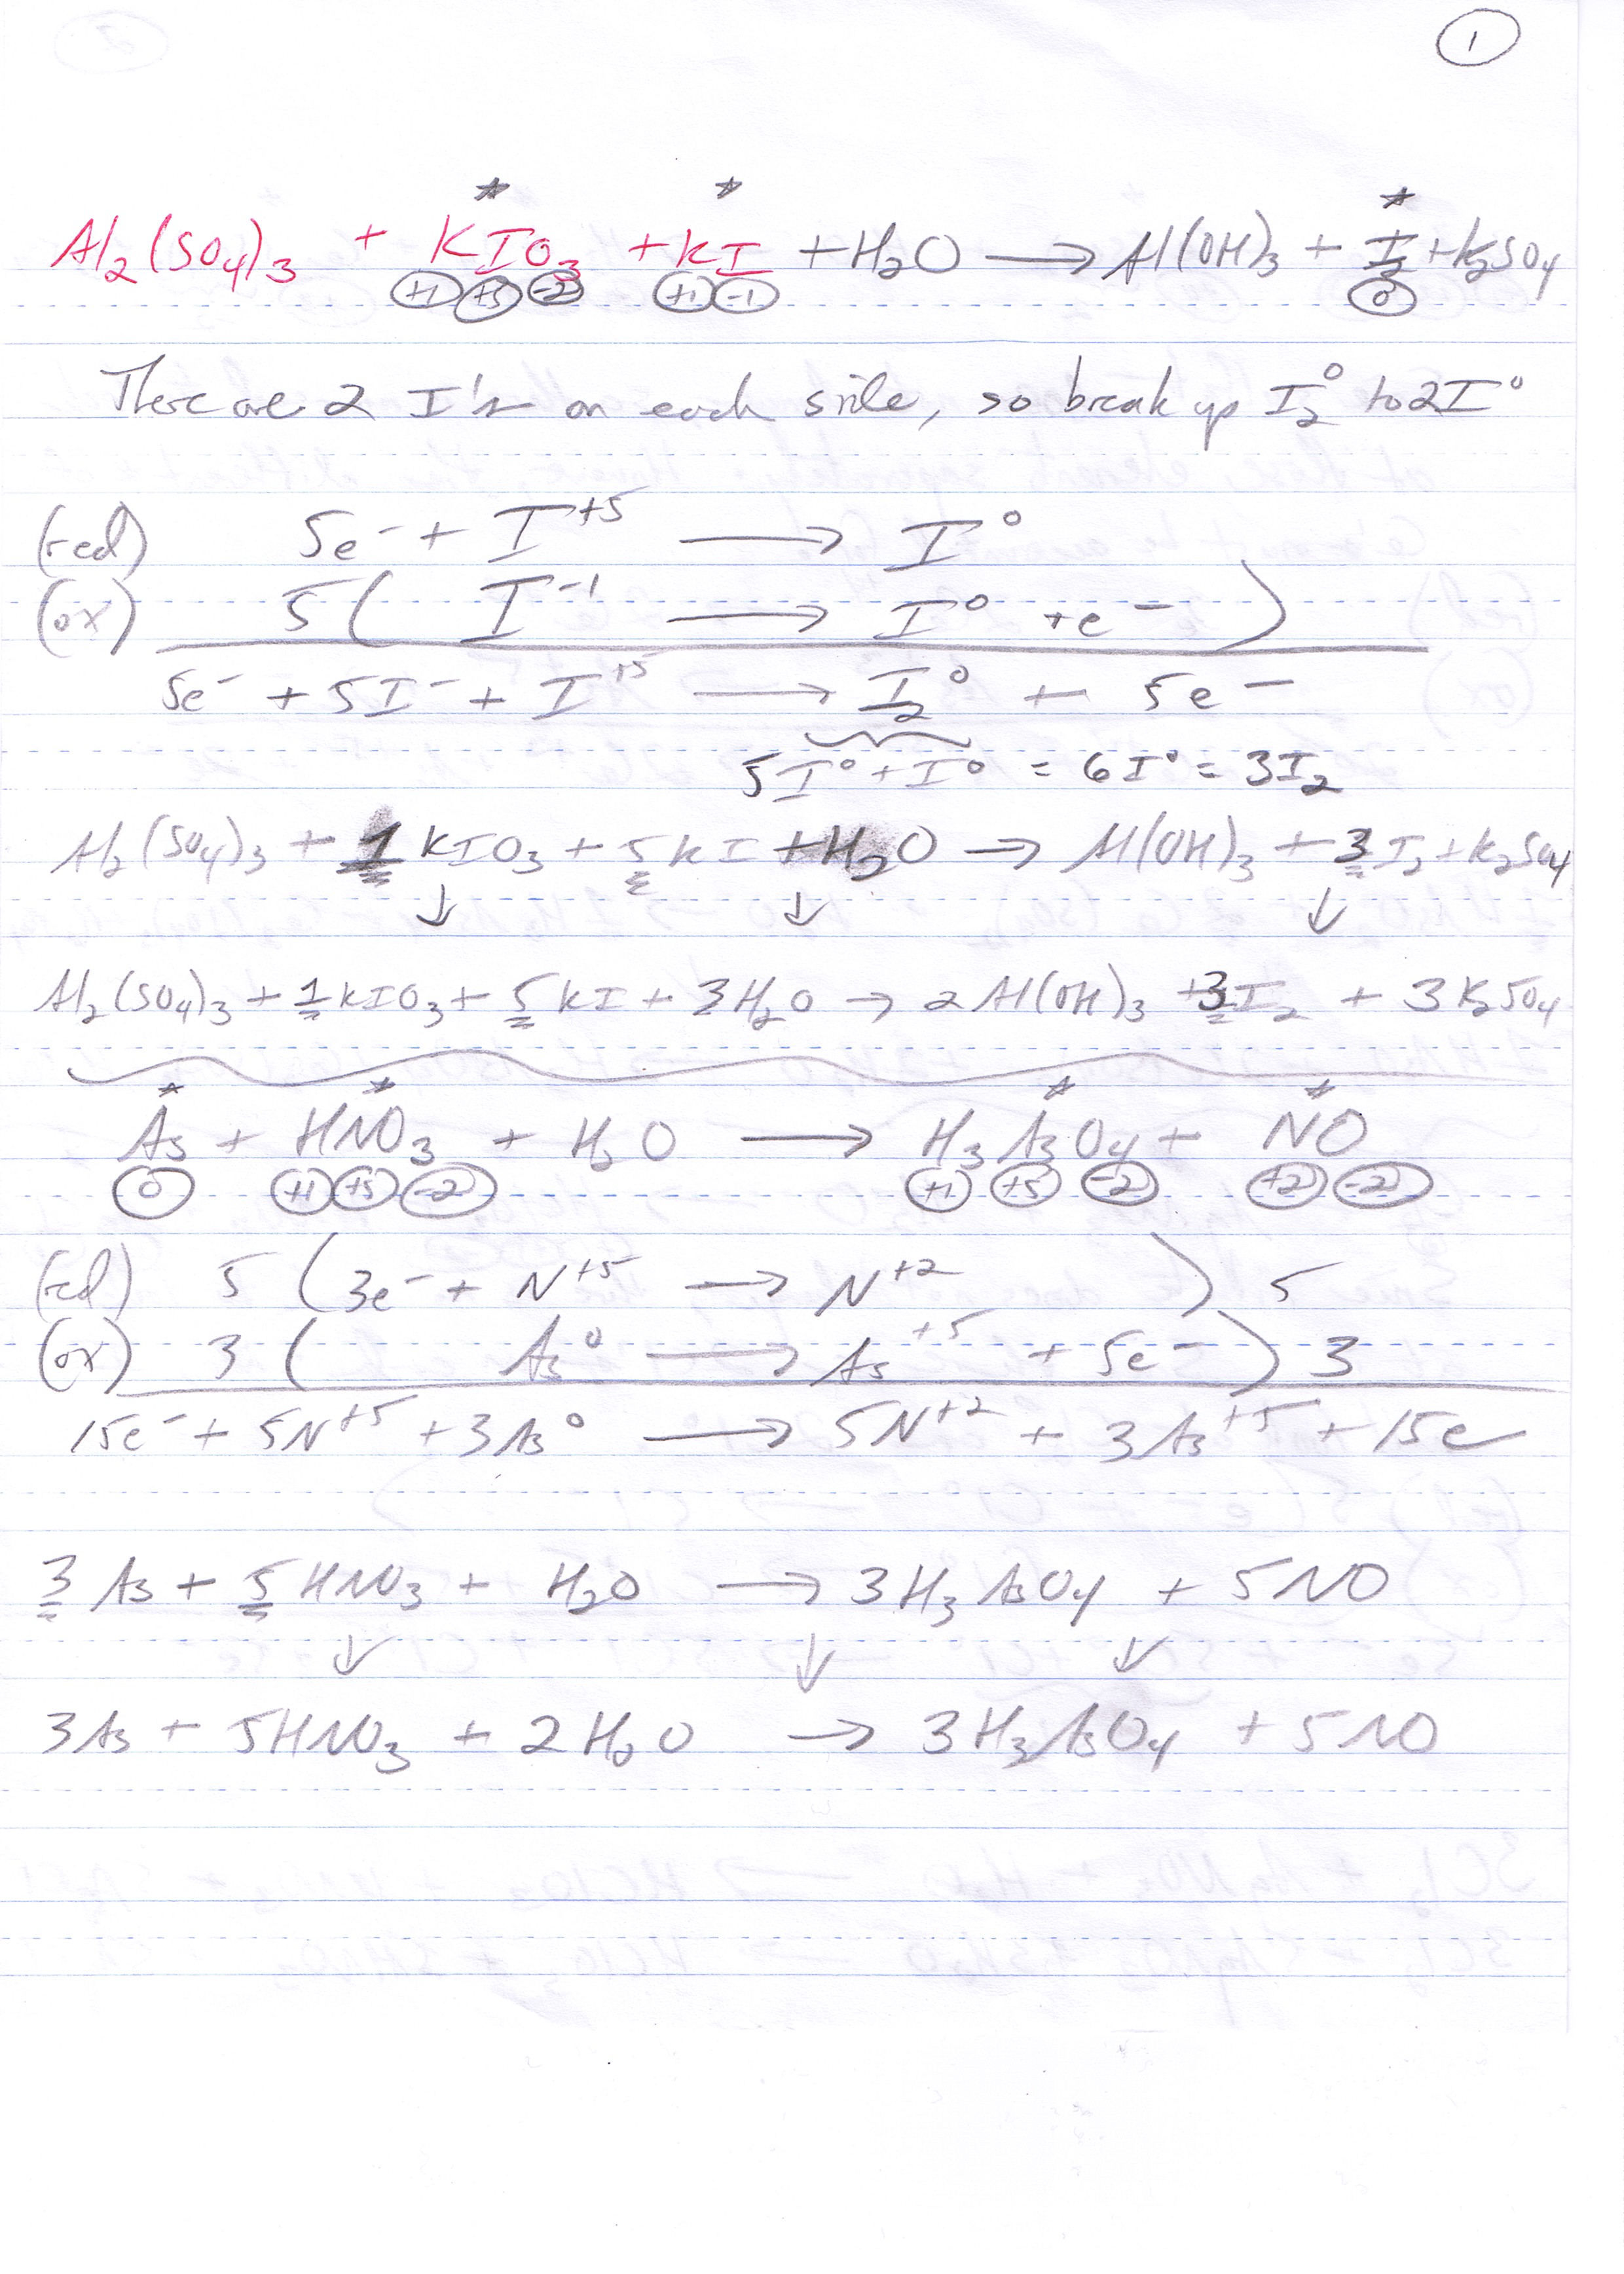 1
Al₂(SO₄)₃ + KIO₃ + KI + H₂O → Al(OH)₃ + I₂ + K₂SO₄
+1 +5 -2 +1 -1 0
There are 2 I's on each side, so break up I₂⁰ to 2I⁰
(red) 5e⁻ + I⁺⁵ → I⁰
(ox) 5( I⁻¹ → I⁰ + e⁻ )
5e⁻ + 5I⁻ + I⁺⁵ → I₂⁰ + 5e⁻
5I⁰ + I⁰ = 6I⁰ = 3I₂
Al₂(SO₄)₃ + 1 KIO₃ + 5 KI + H₂O → Al(OH)₃ + 3 I₂ + K₂SO₄
↓ ↓ ↓
Al₂(SO₄)₃ + 1 KIO₃ + 5 KI + 3H₂O → 2Al(OH)₃ + 3I₂ + 3K₂SO₄
As + HNO₃ + H₂O → H₃AsO₄ + NO
0 +1 +5 -2 +1 +5 -2 +2 -2
(red) 5 ( 3e⁻ + N⁺⁵ → N⁺² ) 5
(ox) 3 ( As⁰ → As⁺⁵ + 5e⁻ ) 3
15e⁻ + 5N⁺⁵ + 3As⁰ → 5N⁺² + 3As⁺⁵ + 15e
3 As + 5 HNO₃ + H₂O → 3H₃AsO₄ + 5NO
↓ ↓ ↓
3As + 5HNO₃ + 2H₂O → 3H₃AsO₄ + 5NO